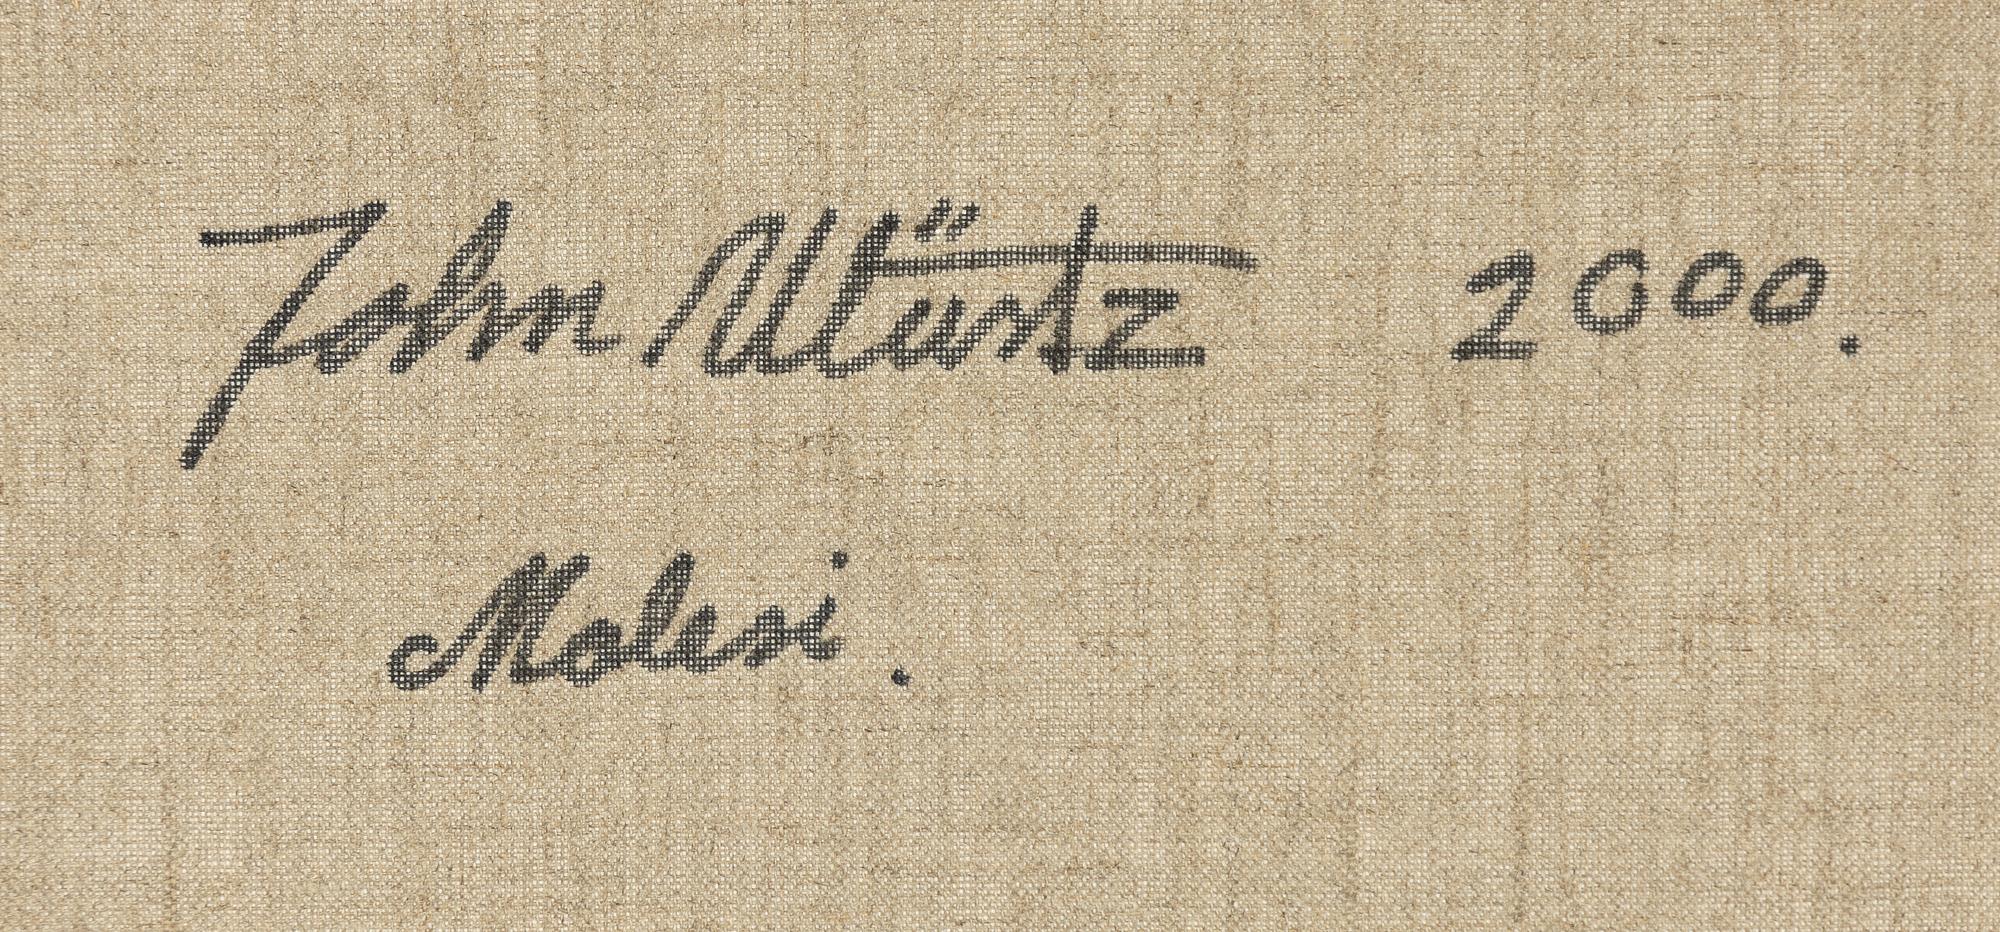 John Würtz 2000.
Molesi.